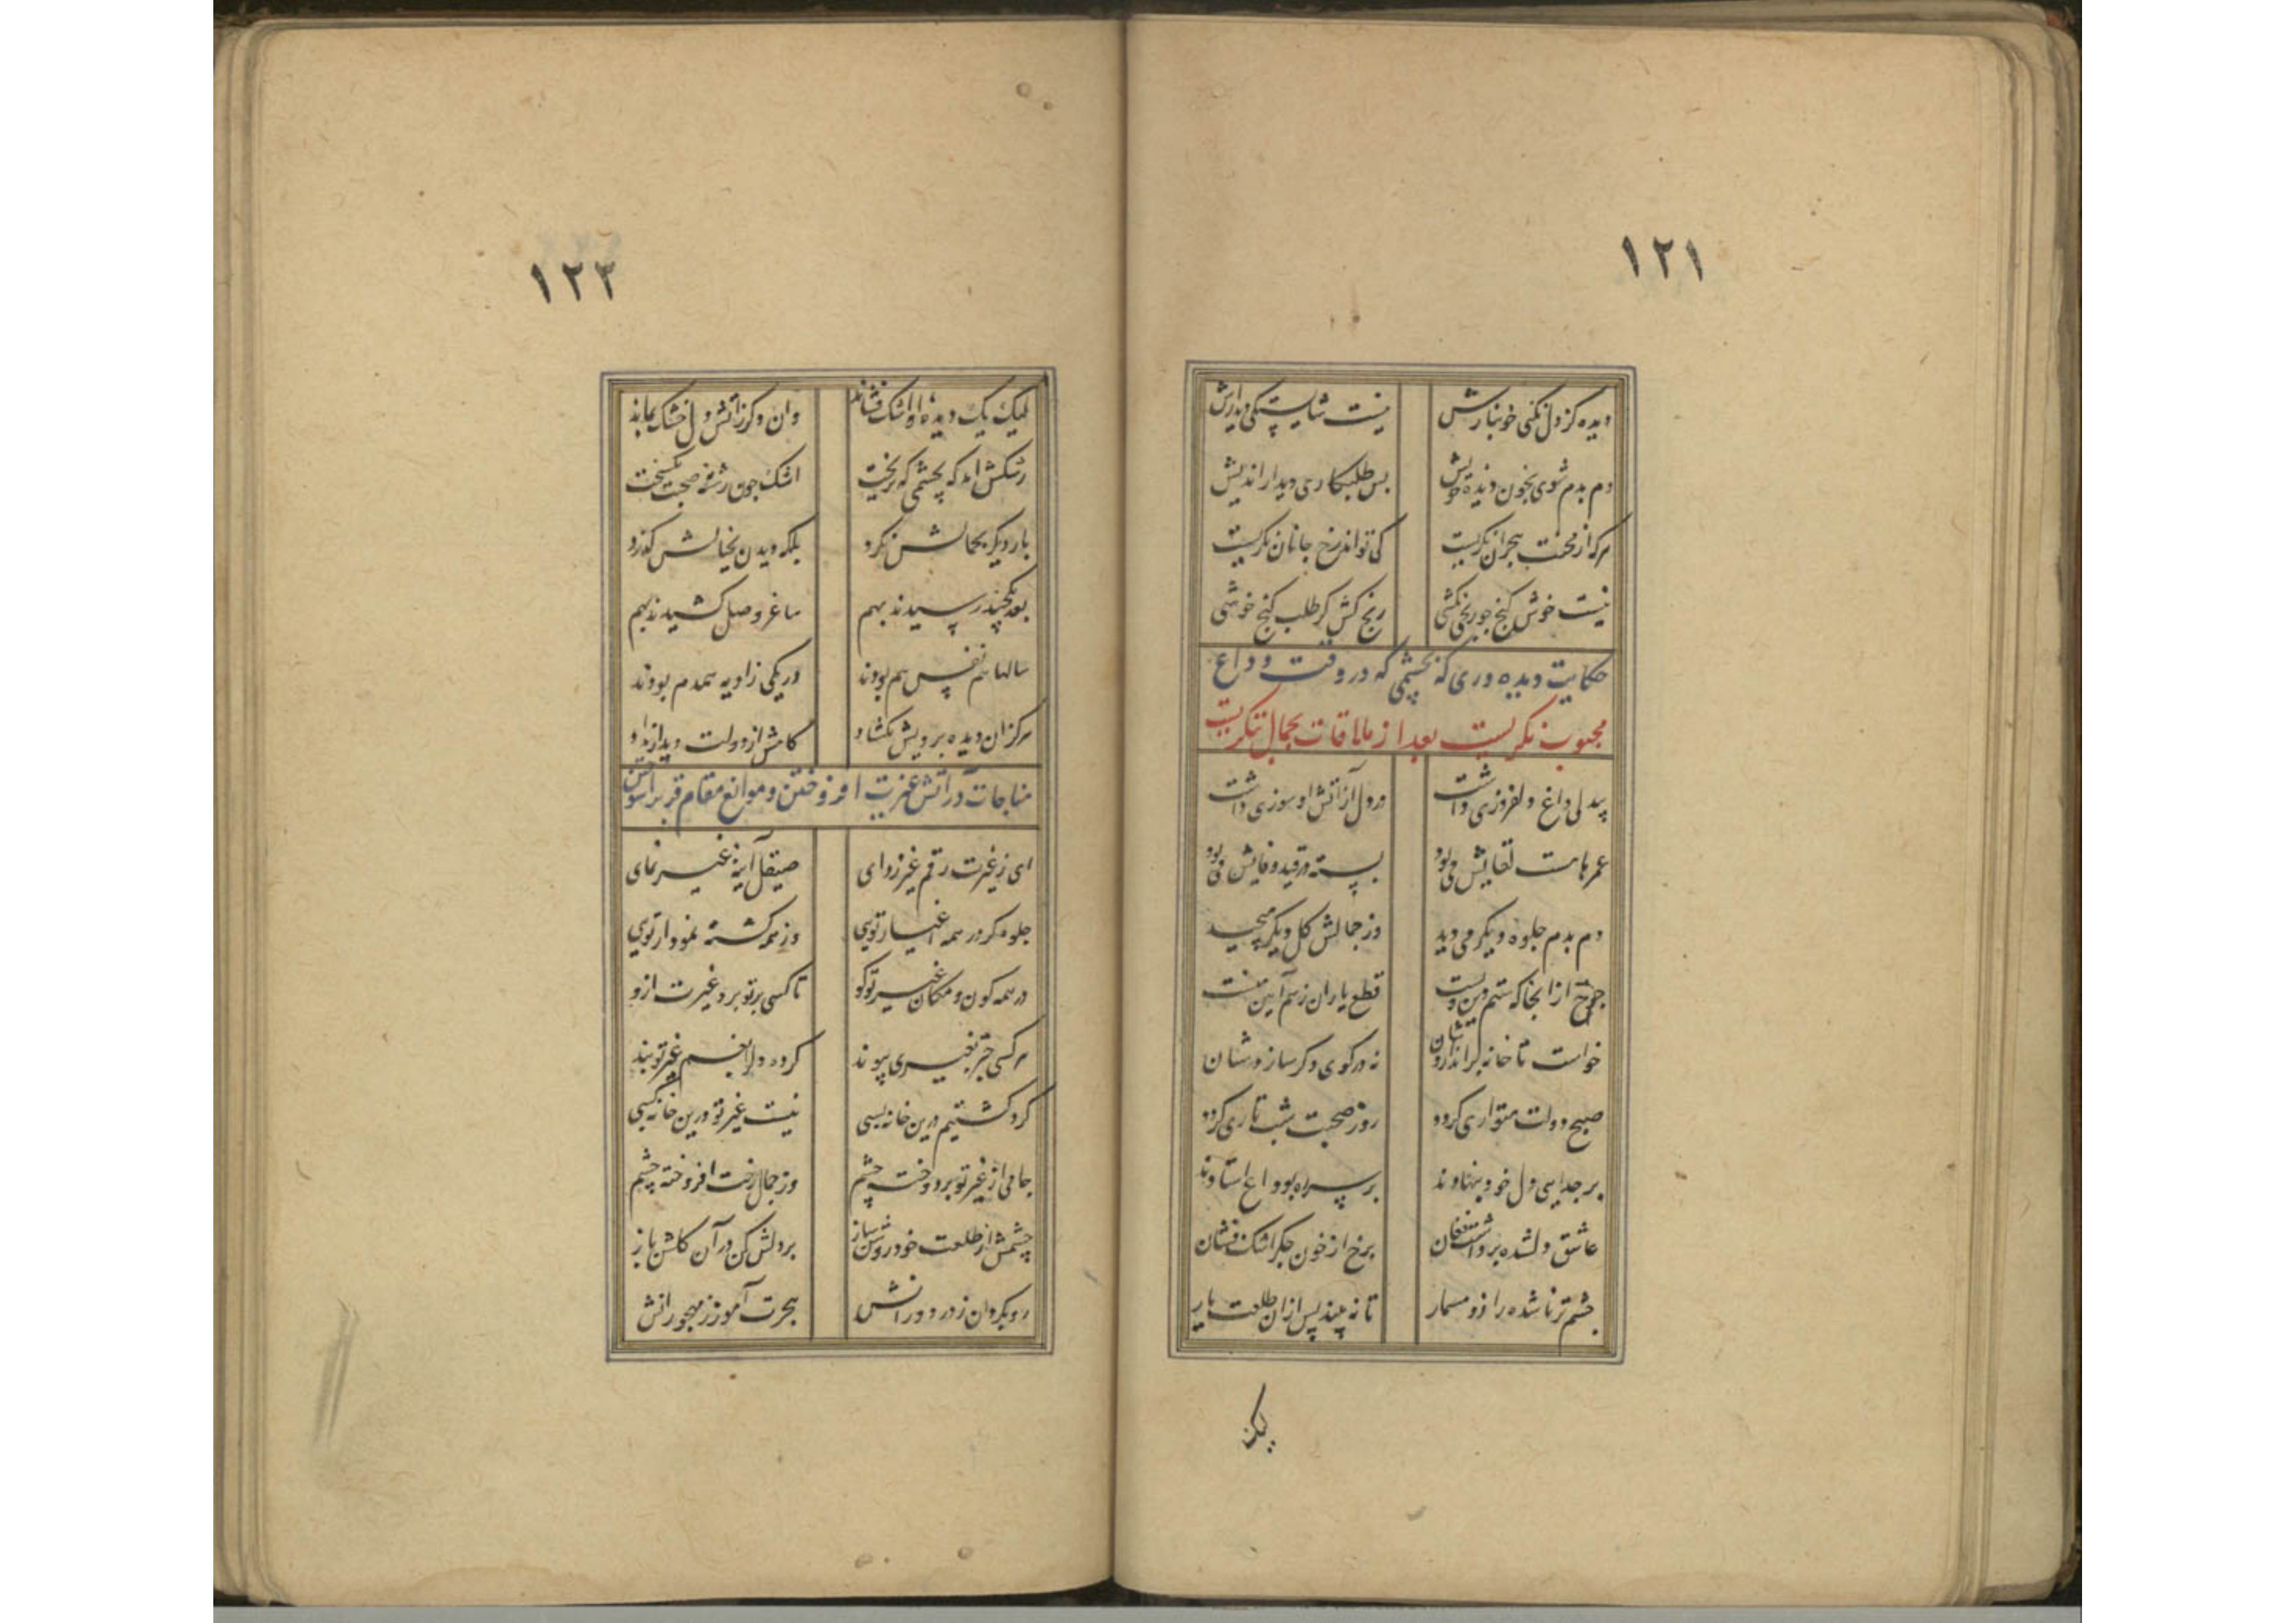 ١٢١
دیده کز دل نکنی خونبارش نیست شایستگی دیدارش
دم بدم شوی بخون دیده خویش بس طلبکاری دیدار اندیش
هرکه از محنت هجران نگریست کی تواند رخ جانان نگریست
نیست خوش گنج جو رنجی نکشی رنج کش گر طلب گنج خوشی
حکایت دیده وری که بچشمی که در وقت وداع
محبوب نگریست بعد از ملاقات بجمال ننگریست
بیدلی داغ دلفروزی داشت در دل از آتش او سوزی داشت
عمرها مست لقایش می بود بسته در قید وفایش می بود
دم بدم جلوه دیگر می دید وز جمالش گل دیگر میچید
چرخ از انجا که ستم دین ویست قطع یاران ز هم آیین ویست
خواست تا خانه براندازدشان در کوی دگر سازدشان
صبح دولت متواری گردد روز صحبت شب تاری گردد
بر جدایی دل خود بنهادند بر سر راه وداع استادند
عاشق دلشده برداشت فغان برخ از خون جگر اشک فشان
چشم تر ناشده را زد مسمار تا نه بیند پس از ان طلعت یار
لیک
١٢٢
لیک یک دیده او اشک فشاند وان دگر ز آتش دل خشک بماند
رشکش امد که بچشمی که نریخت اشک چون رشته صحبت بگسیخت
بار دیگر بجمالش نگرد بلکه دیدن بخیالش گذرد
بعد یکچند رسیدند بهم ساغر وصل کشیدند بهم
سالها هم نفس هم بودند در یکی زاویه همدم بودند
هرگز ان دیده برویش نگشاد کامش از دولت دیدار نداد
مناجات در آتش غیرت افروختن و موانع مقام قرب را سوختن
ای ز غیرت رقم غیر زدای صیقل آینه غیر نمای
جلوه گر در همه اغیار تویی وز همه گشته نمودار تویی
در همه کون و مکان غیر تو کو تا کسی بر تو برد غیرت ازو
هر کسی جز بغیری پیوند کرده دل را بغم غیر تو بند
گرد گشتیم درین خانه بسی نیست غیر تو درین خانه کسی
جامی از غیر تو بردوخت چشم وز جمال رخت افروخته چشم
چشمش از طلعت خود روشن ساز بر دلش کن در آن گلشن باز
رو بگردان ز در دورانش هجرت آموز ز مهجورانش